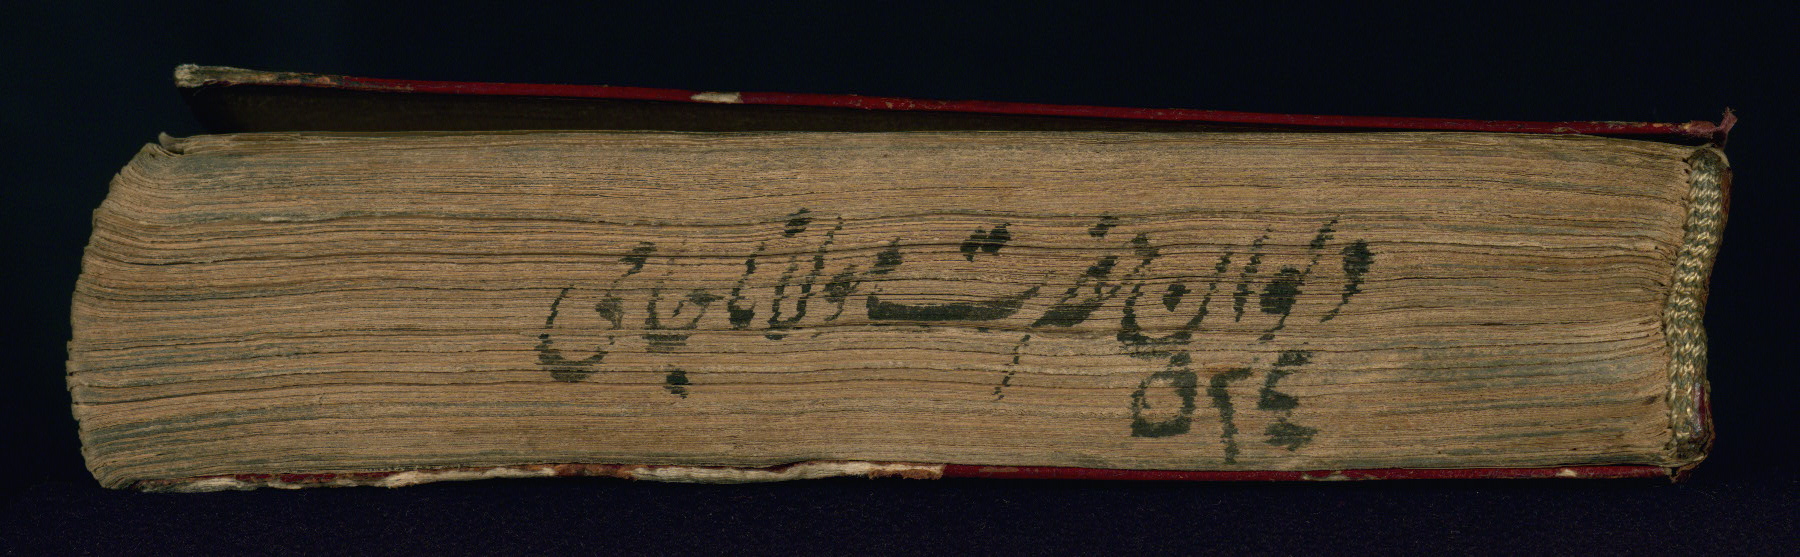 دیوان حضرت مولانا جامی
٥٢٤